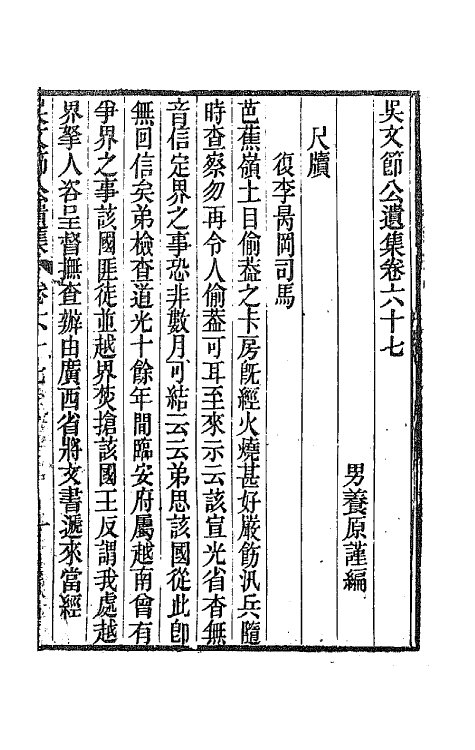 吳文節公遺集卷六十七
男養原謹編
尺牘
復李昺岡司馬
芭蕉嶺土目偷葢之卡房旣經火燒甚好嚴飭汛兵隨
時查察勿再令人偷葢可耳至來示云該宣光省杳無
音信定界之事恐非數月可結云云弟思該國從此卽
無回信矣弟檢查道光十餘年間臨安府屬越南曾有
爭界之事該國匪徒並越界焚搶該國王反謂我處越
界拏人咨呈督撫查辦由廣西省將文書遞來當經
吳文節公遺集 卷六十七